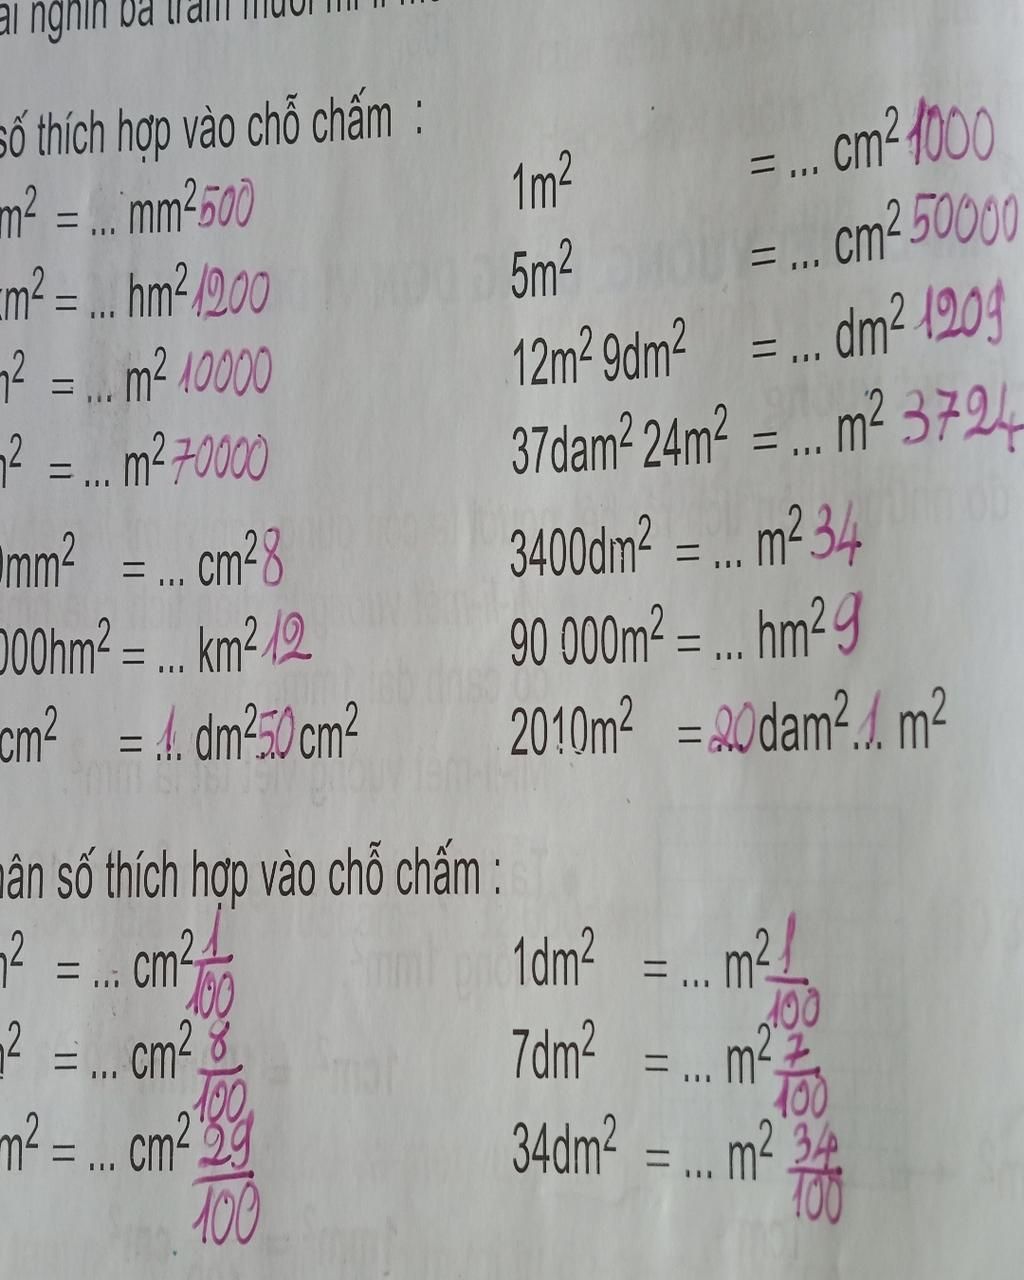 số thích hợp vào chỗ chấm :
m² = ... mm² 500
1m² = ... cm² 1000
m² = ... hm² 1200
5m² = ... cm² 50000
² = ... m² 10000
12m² 9dm² = ... dm² 1209
² = ... m² 70000
37dam² 24m² = ... m² 3724
mm² = ... cm² 8
3400dm² = ... m² 34
000hm² = ... km² 12
90 000m² = ... hm² 9
cm² = 1 dm² 50 cm²
2010m² = 20 dam² 1... m²
số thích hợp vào chỗ chấm :
² = ... cm² 1/100
1dm² = ... m² 1/100
² = ... cm² 8/100
7dm² = ... m² 7/100
m² = ... cm² 29/100
34dm² = ... m² 34/100